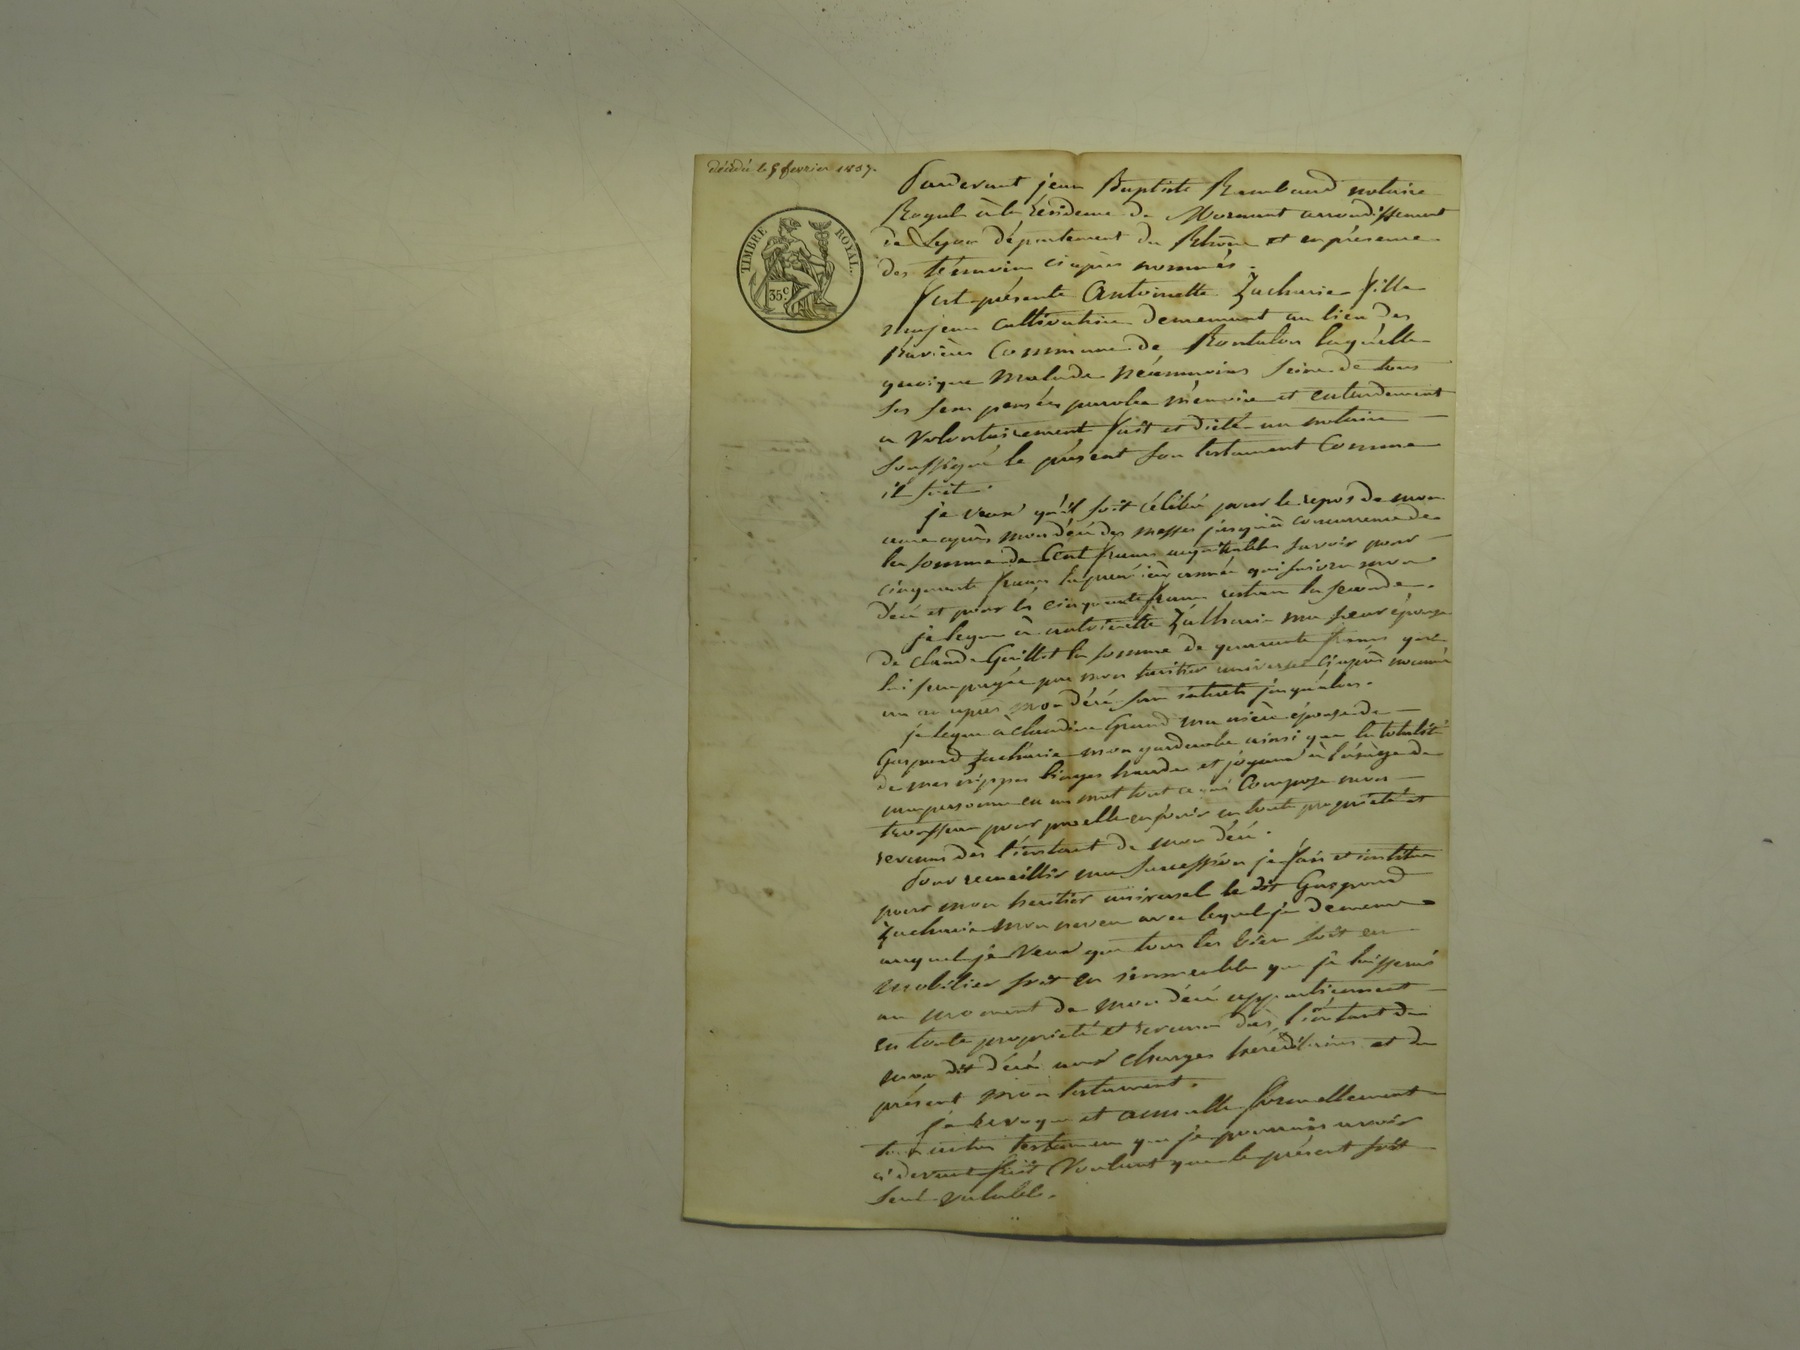 décédé le 5 février 1837.
TIMBRE ROYAL
35 c
Pardevant jean Baptiste Rambaud notaire
Royal à la résidence de Mornant arrondissement
de Lyon département du Rhône et en présence
des témoins ciaprès nommés.
fut présente Antoinette Zacharie fille
majeure cultivatrice demeurant au lieu des
Ravières Commune de Rontalon laquelle
quoique malade néanmoins seine de tous
ses sens pensées parole mémoire et entendement
a volontairement fait et dicté au notaire
soussigné le présent son testament Comme
il suit.
je veux qu'il soit célébré pour le repos de mon
ame après mon décè des messes jusqu'à concurrence de
la somme de Cent francs acquitables savoir pour
cinquante francs la première année qui suivra mon
décè et pour les cinquante francs restan la seconde.
je legue à antoinette Zacharie ma sœur épouse
de claude Guillot la somme de quarante francs qui
lui sera payée par mon héritier universel ciaprès nommé
un an après mon décè san intérêts jusqu'alors.
je legue à claudine Grand ma nièce épouse de
Gaspard Zacharie mon garderobe ainsi que la totalité
de mes nippes linges hardes et joyaux à l'usage de
ma personne en un mot tout ce qui Compose mon
trousseau pour par elle en jouir en toute propriété et
revenus dès l'instant de mon décè.
Pour recueillir ma succession je fais et institue
pour mon héritier universel le dit Gaspard
Zacharie mon neveu avec lequel je demeure
auquel je veux que tous les bien soit en
mobilier soit en immeubles que je laisserai
au moment de mon décè appartiennent
en toute propriété et revenus dès l'instant de
mon dit décè aux charges héréditaires et du
présent mon testament.
je revoque et annulle formellement
tous autres testamens que je pourrais avoir
ci devant fait Voulant que le présent soit
seul valable.